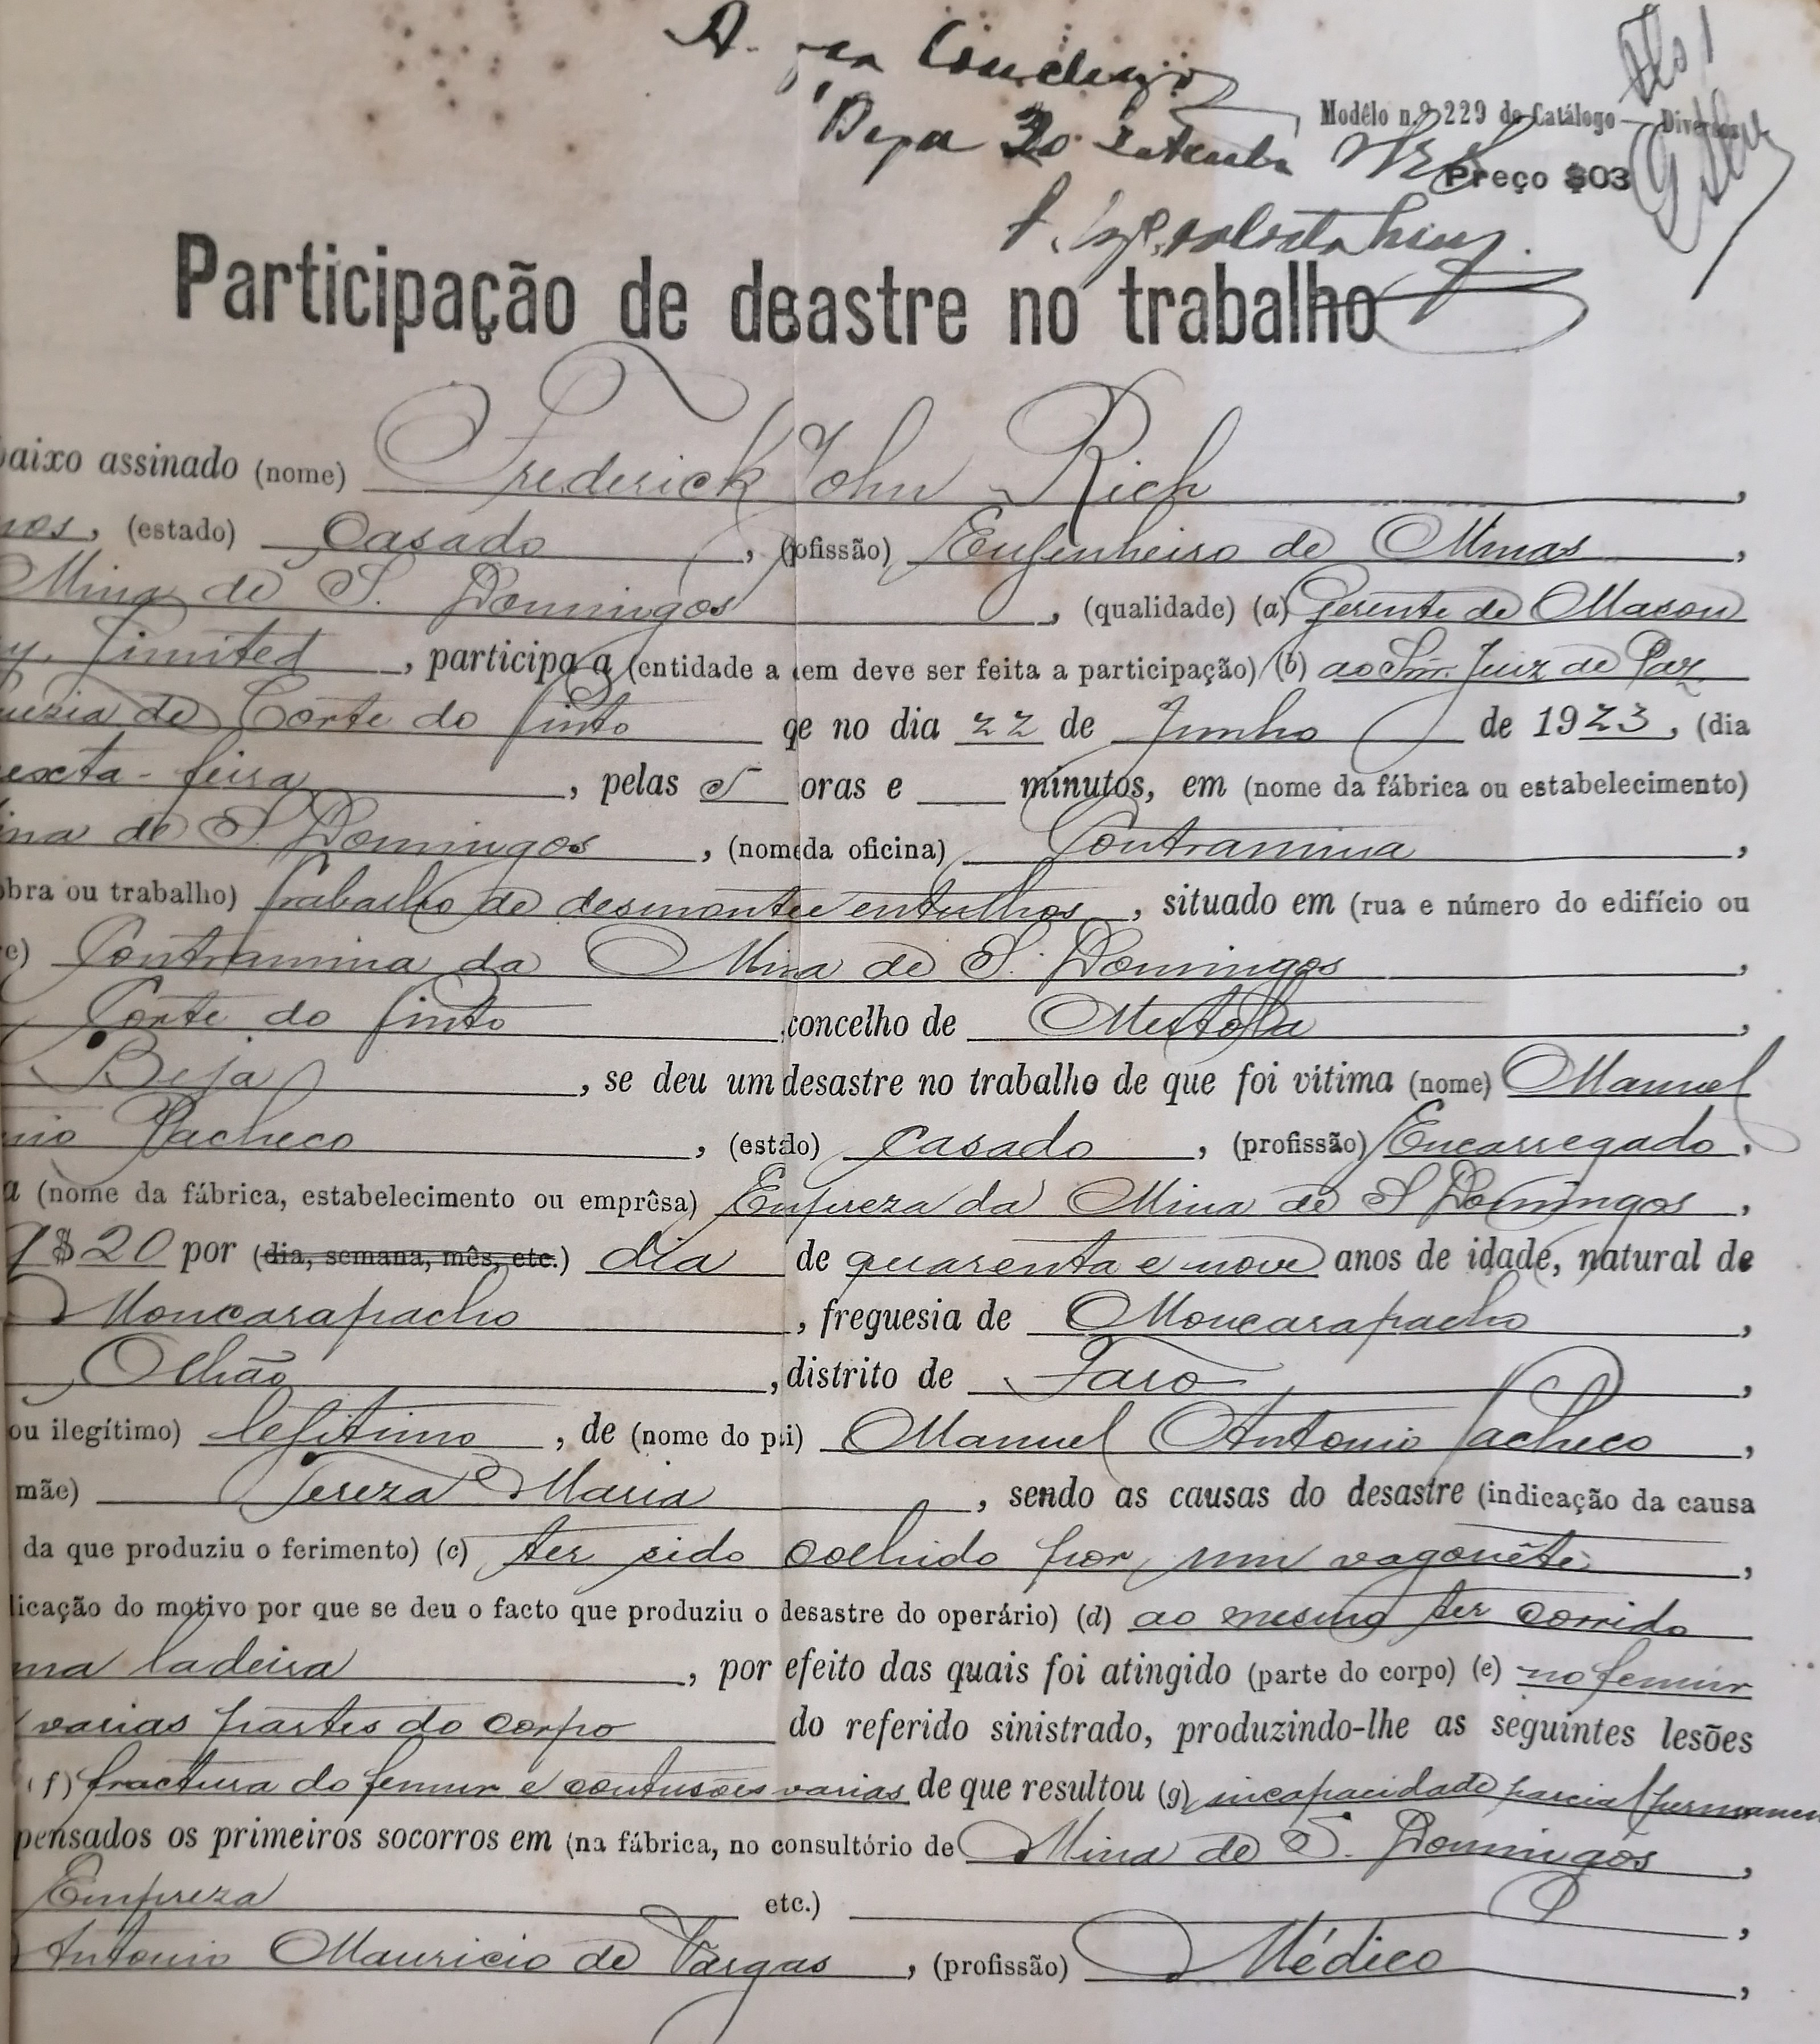 Beja 30
Modêlo n.º 229 do Catálogo — Diversos
Preço $03
Participação de deastre no trabalho
baixo assinado (nome) Frederick John Rich,
nos, (estado) Casado, (pofissão) Engenheiro de Minas,
Mina de S. Domingos, (qualidade) (a) Gerente de Mason
y, Limited, participa a (entidade a em deve ser feita a participação) (b) ao Snr. Juiz de Paz
uezia de Corte do Pinto qe no dia 22 de Junho de 1923, (dia
exta-feira, pelas 5 oras e minutos, em (nome da fábrica ou estabelecimento)
ina de S. Domingos, (nome da oficina) Contramina,
obra ou trabalho) trabalho de desmonte e entulhos, situado em (rua e número do edifício ou
e) Contramina da Mina de S. Domingos,
Corte do Pinto concelho de Mertola,
Beja, se deu um desastre no trabalho de que foi vítima (nome) Manuel
nio Pacheco, (estado) Casado, (profissão) Encarregado,
a (nome da fábrica, estabelecimento ou emprêsa) Empreza da Mina de S Domingos,
7$20 por (dia, semana, mês, etc.) dia de quarenta e nove anos de idade, natural de
Moncarapacho, freguesia de Moncarapacho,
Olhão, distrito de Faro,
ou ilegítimo) legitimo, de (nome do pai) Manuel Antonio Pacheco,
mãe) Tereza Maria, sendo as causas do desastre (indicação da causa
da que produziu o ferimento) (c) ter sido colhido por um vagonête,
licação do motivo por que se deu o facto que produziu o desastre do operário) (d) ao mesmo ter corrido
ma ladeira, por efeito das quais foi atingido (parte do corpo) (e) no femur
varias partes do corpo do referido sinistrado, produzindo-lhe as seguintes lesões
(f) fractura do femur e contusões varias de que resultou (g) incapacidade parcial permanen
pensados os primeiros socorros em (na fábrica, no consultório de Mina de S. Domingos,
Empreza etc.),
Antonio Mauricio de Vargas, (profissão) Médico,